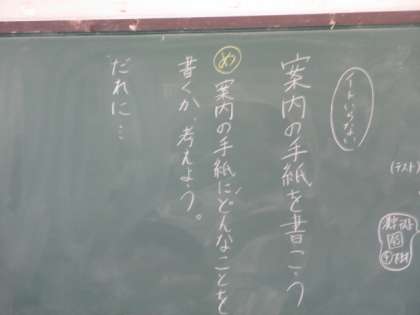 (テスト)
ノートいらない
案内の手紙を書こう
め 案内の手紙に、どんなことを
書くか、考えよう。
だれに…